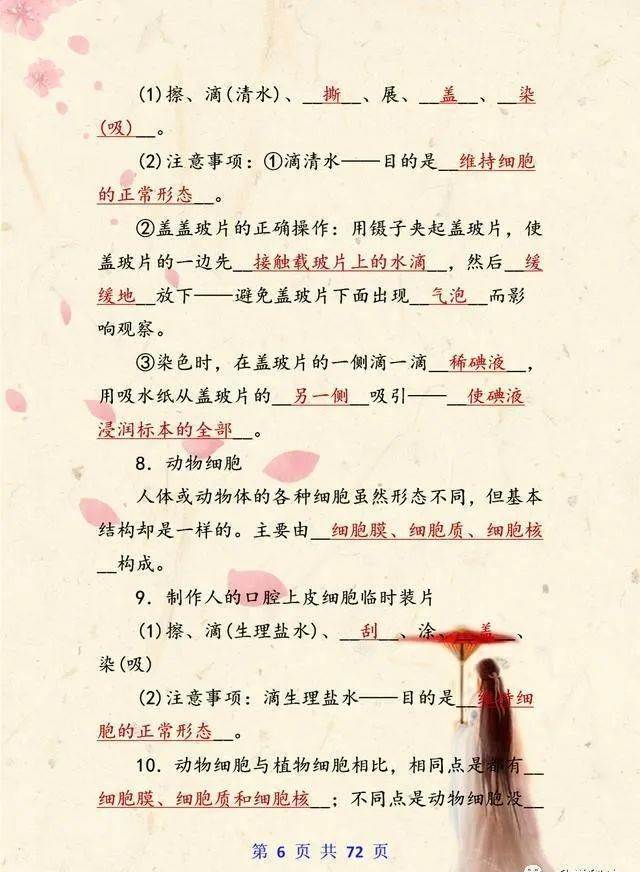 (1)擦、滴(清水)、__撕__、展、__盖__、__染
(吸)__。
(2)注意事项：①滴清水——目的是__维持细胞
的正常形态__。
②盖盖玻片的正确操作：用镊子夹起盖玻片，使
盖玻片的一边先__接触载玻片上的水滴__，然后__缓
缓地__放下——避免盖玻片下面出现__气泡__而影
响观察。
③染色时，在盖玻片的一侧滴一滴__稀碘液__，
用吸水纸从盖玻片的__另一侧__吸引——__使碘液
浸润标本的全部__。
8．动物细胞
人体或动物体的各种细胞虽然形态不同，但基本
结构却是一样的。主要由__细胞膜、细胞质、细胞核
__构成。
9．制作人的口腔上皮细胞临时装片
(1)擦、滴(生理盐水)、__刮__、涂、__盖__、
染(吸)
(2)注意事项：滴生理盐水——目的是__维持细
胞的正常形态__。
10．动物细胞与植物细胞相比，相同点是都有__
细胞膜、细胞质和细胞核__；不同点是动物细胞没__
第 6 页 共 72 页